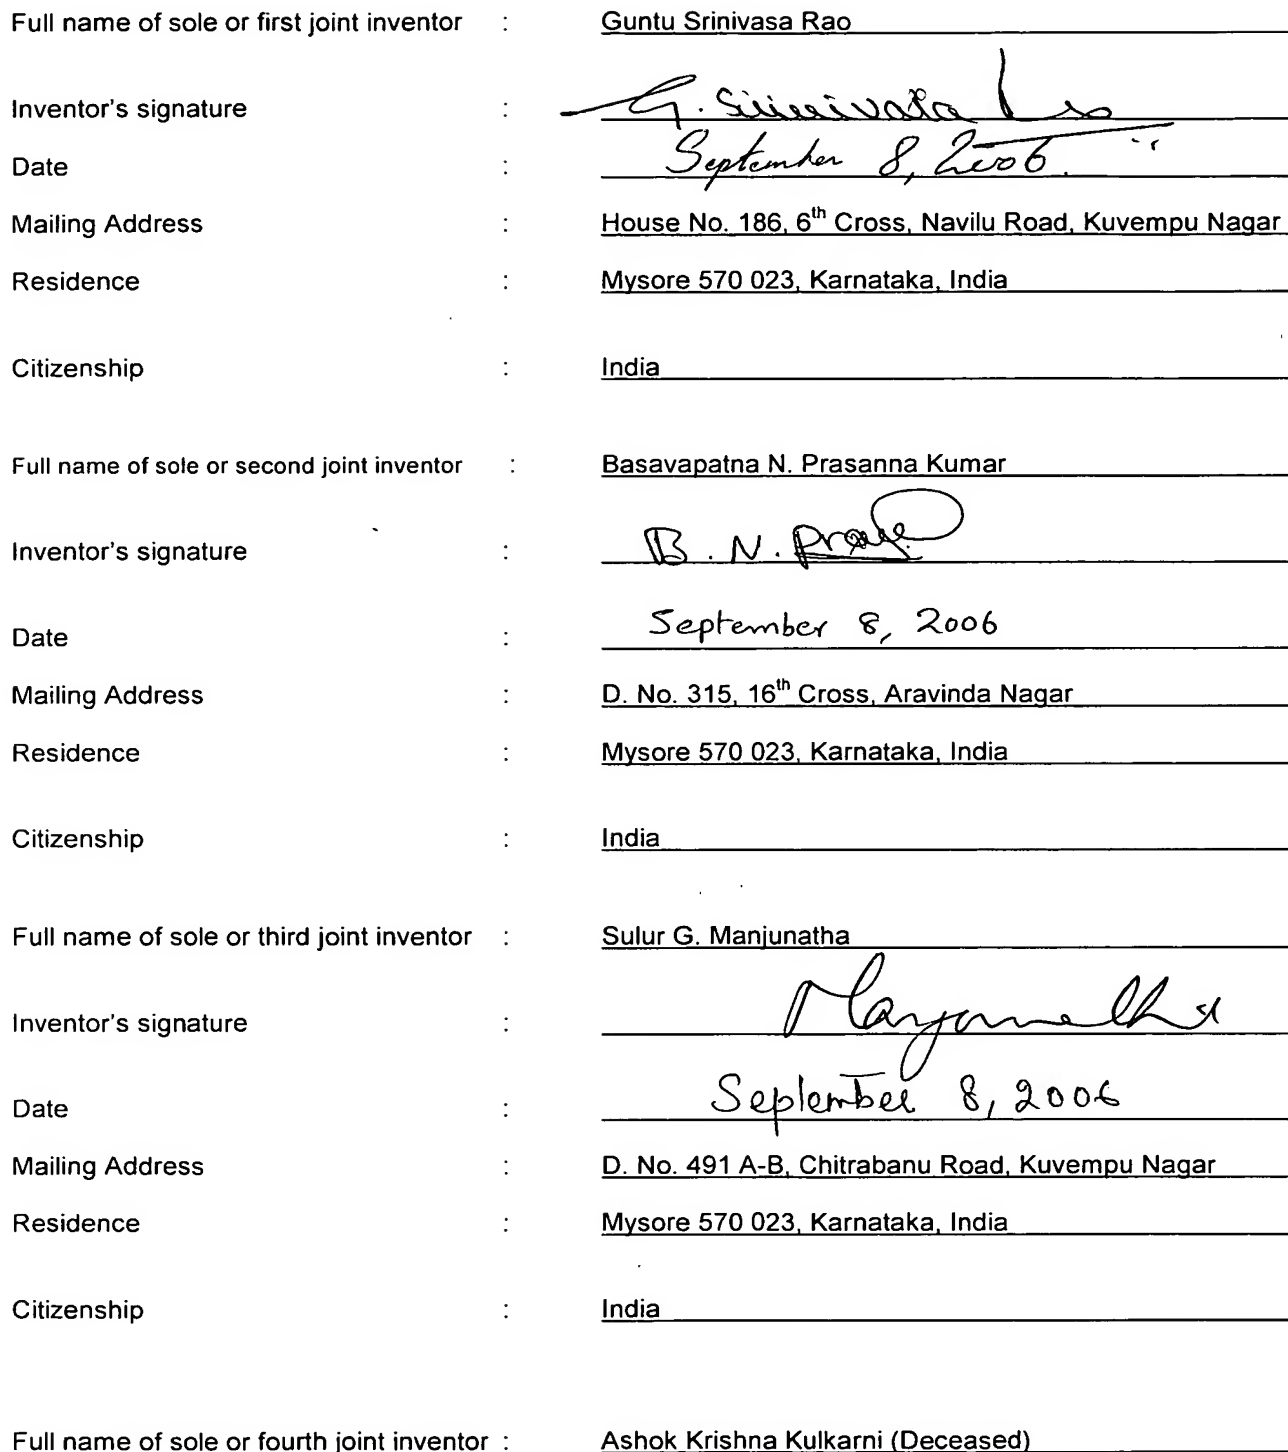 Full name of sole or first joint inventor : Guntu Srinivasa Rao
Inventor's signature : G. Srinivasa Rao
Date : September 8, 2006.
Mailing Address : House No. 186, 6th Cross, Navilu Road, Kuvempu Nagar
Residence : Mysore 570 023, Karnataka, India
Citizenship : India
Full name of sole or second joint inventor : Basavapatna N. Prasanna Kumar
Inventor's signature : B. N.
Date : September 8, 2006
Mailing Address : D. No. 315, 16th Cross, Aravinda Nagar
Residence : Mysore 570 023, Karnataka, India
Citizenship : India
Full name of sole or third joint inventor : Sulur G. Manjunatha
Inventor's signature : Manjunatha
Date : September 8, 2006
Mailing Address : D. No. 491 A-B, Chitrabanu Road, Kuvempu Nagar
Residence : Mysore 570 023, Karnataka, India
Citizenship : India
Full name of sole or fourth joint inventor : Ashok Krishna Kulkarni (Deceased)